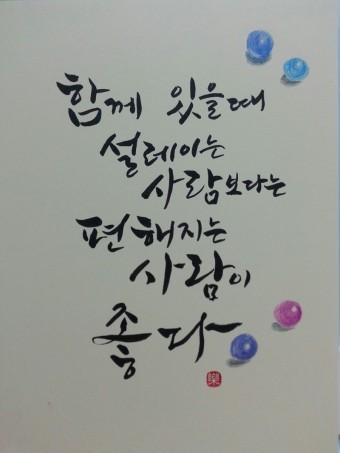 함께 있을때
설레이는
사람보다는
편해지는
사람이
좋다
樂